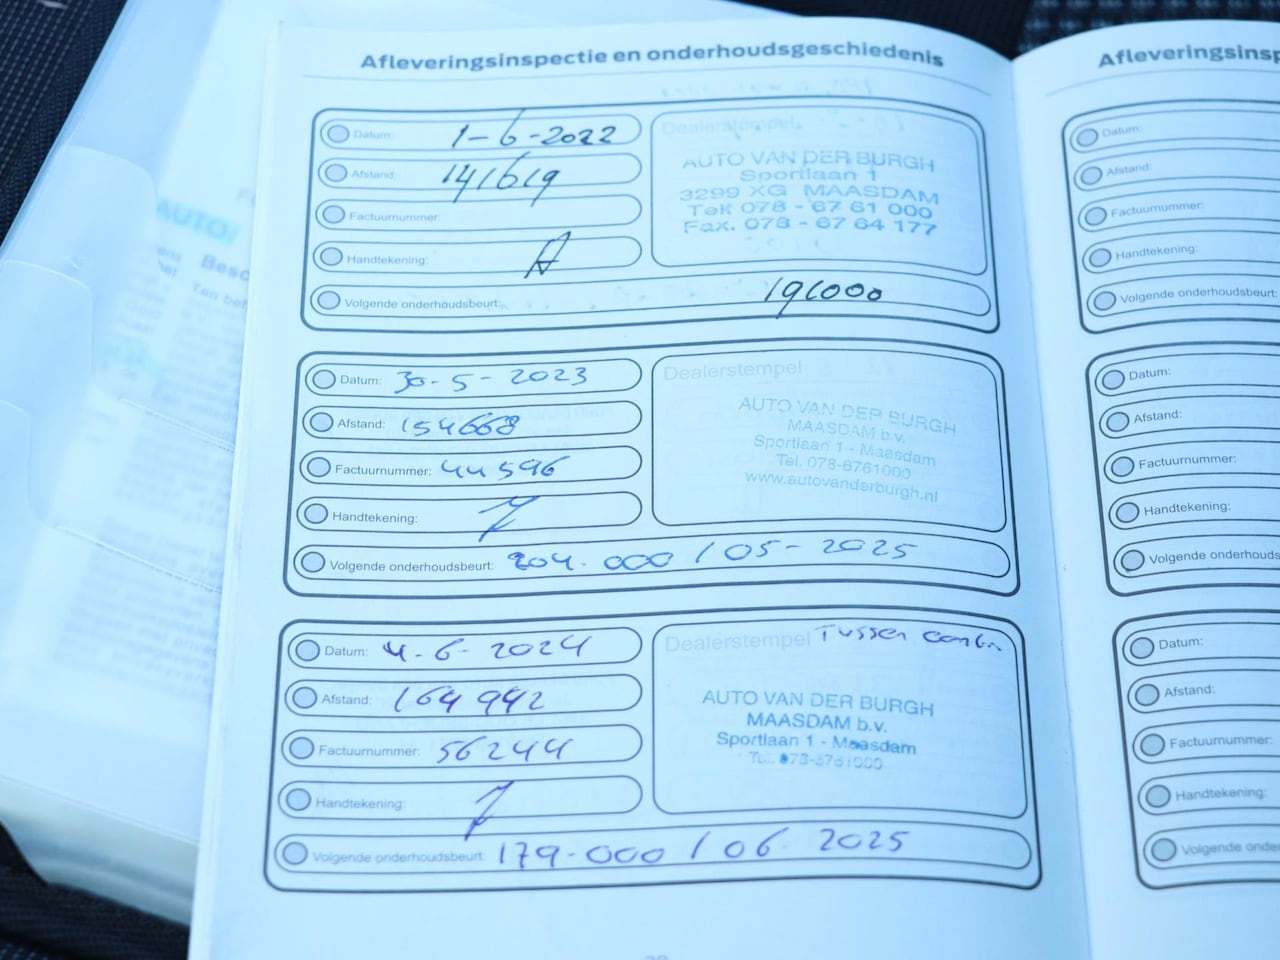 Afleveringsinspectie en onderhoudsgeschiedenis
Datum: 1-6-2022
Afstand: 141619
Factuurnummer:
Handtekening:
Volgende onderhoudsbeurt: 191000
Dealerstempel
AUTO VAN DER BURGH
Sportlaan 1
3299 XG MAASDAM
Tel. 078 - 67 61 000
Fax. 078 - 67 64 177
Datum: 30-5-2023
Afstand: 154668
Factuurnummer: 44596
Handtekening:
Volgende onderhoudsbeurt: 204.000 / 05-2025
Dealerstempel
AUTO VAN DER BURGH
MAASDAM b.v.
Sportlaan 1 - Maasdam
Tel. 078-6761000
www.autovanderburgh.nl
Datum: 4-6-2024
Afstand: 164942
Factuurnummer: 56244
Handtekening:
Volgende onderhoudsbeurt: 179-000 / 06 2025
Dealerstempel Tussen
AUTO VAN DER BURGH
MAASDAM b.v.
Sportlaan 1 - Maasdam
Tel. 078-6761000
Datum:
Afstand:
Factuurnummer:
Handtekening:
Volgende onderhoudsbeurt:
Datum:
Afstand:
Factuurnummer:
Handtekening:
Volgende
Datum:
Afstand:
Factuurnummer:
Handtekening:
Volgende
AUTO